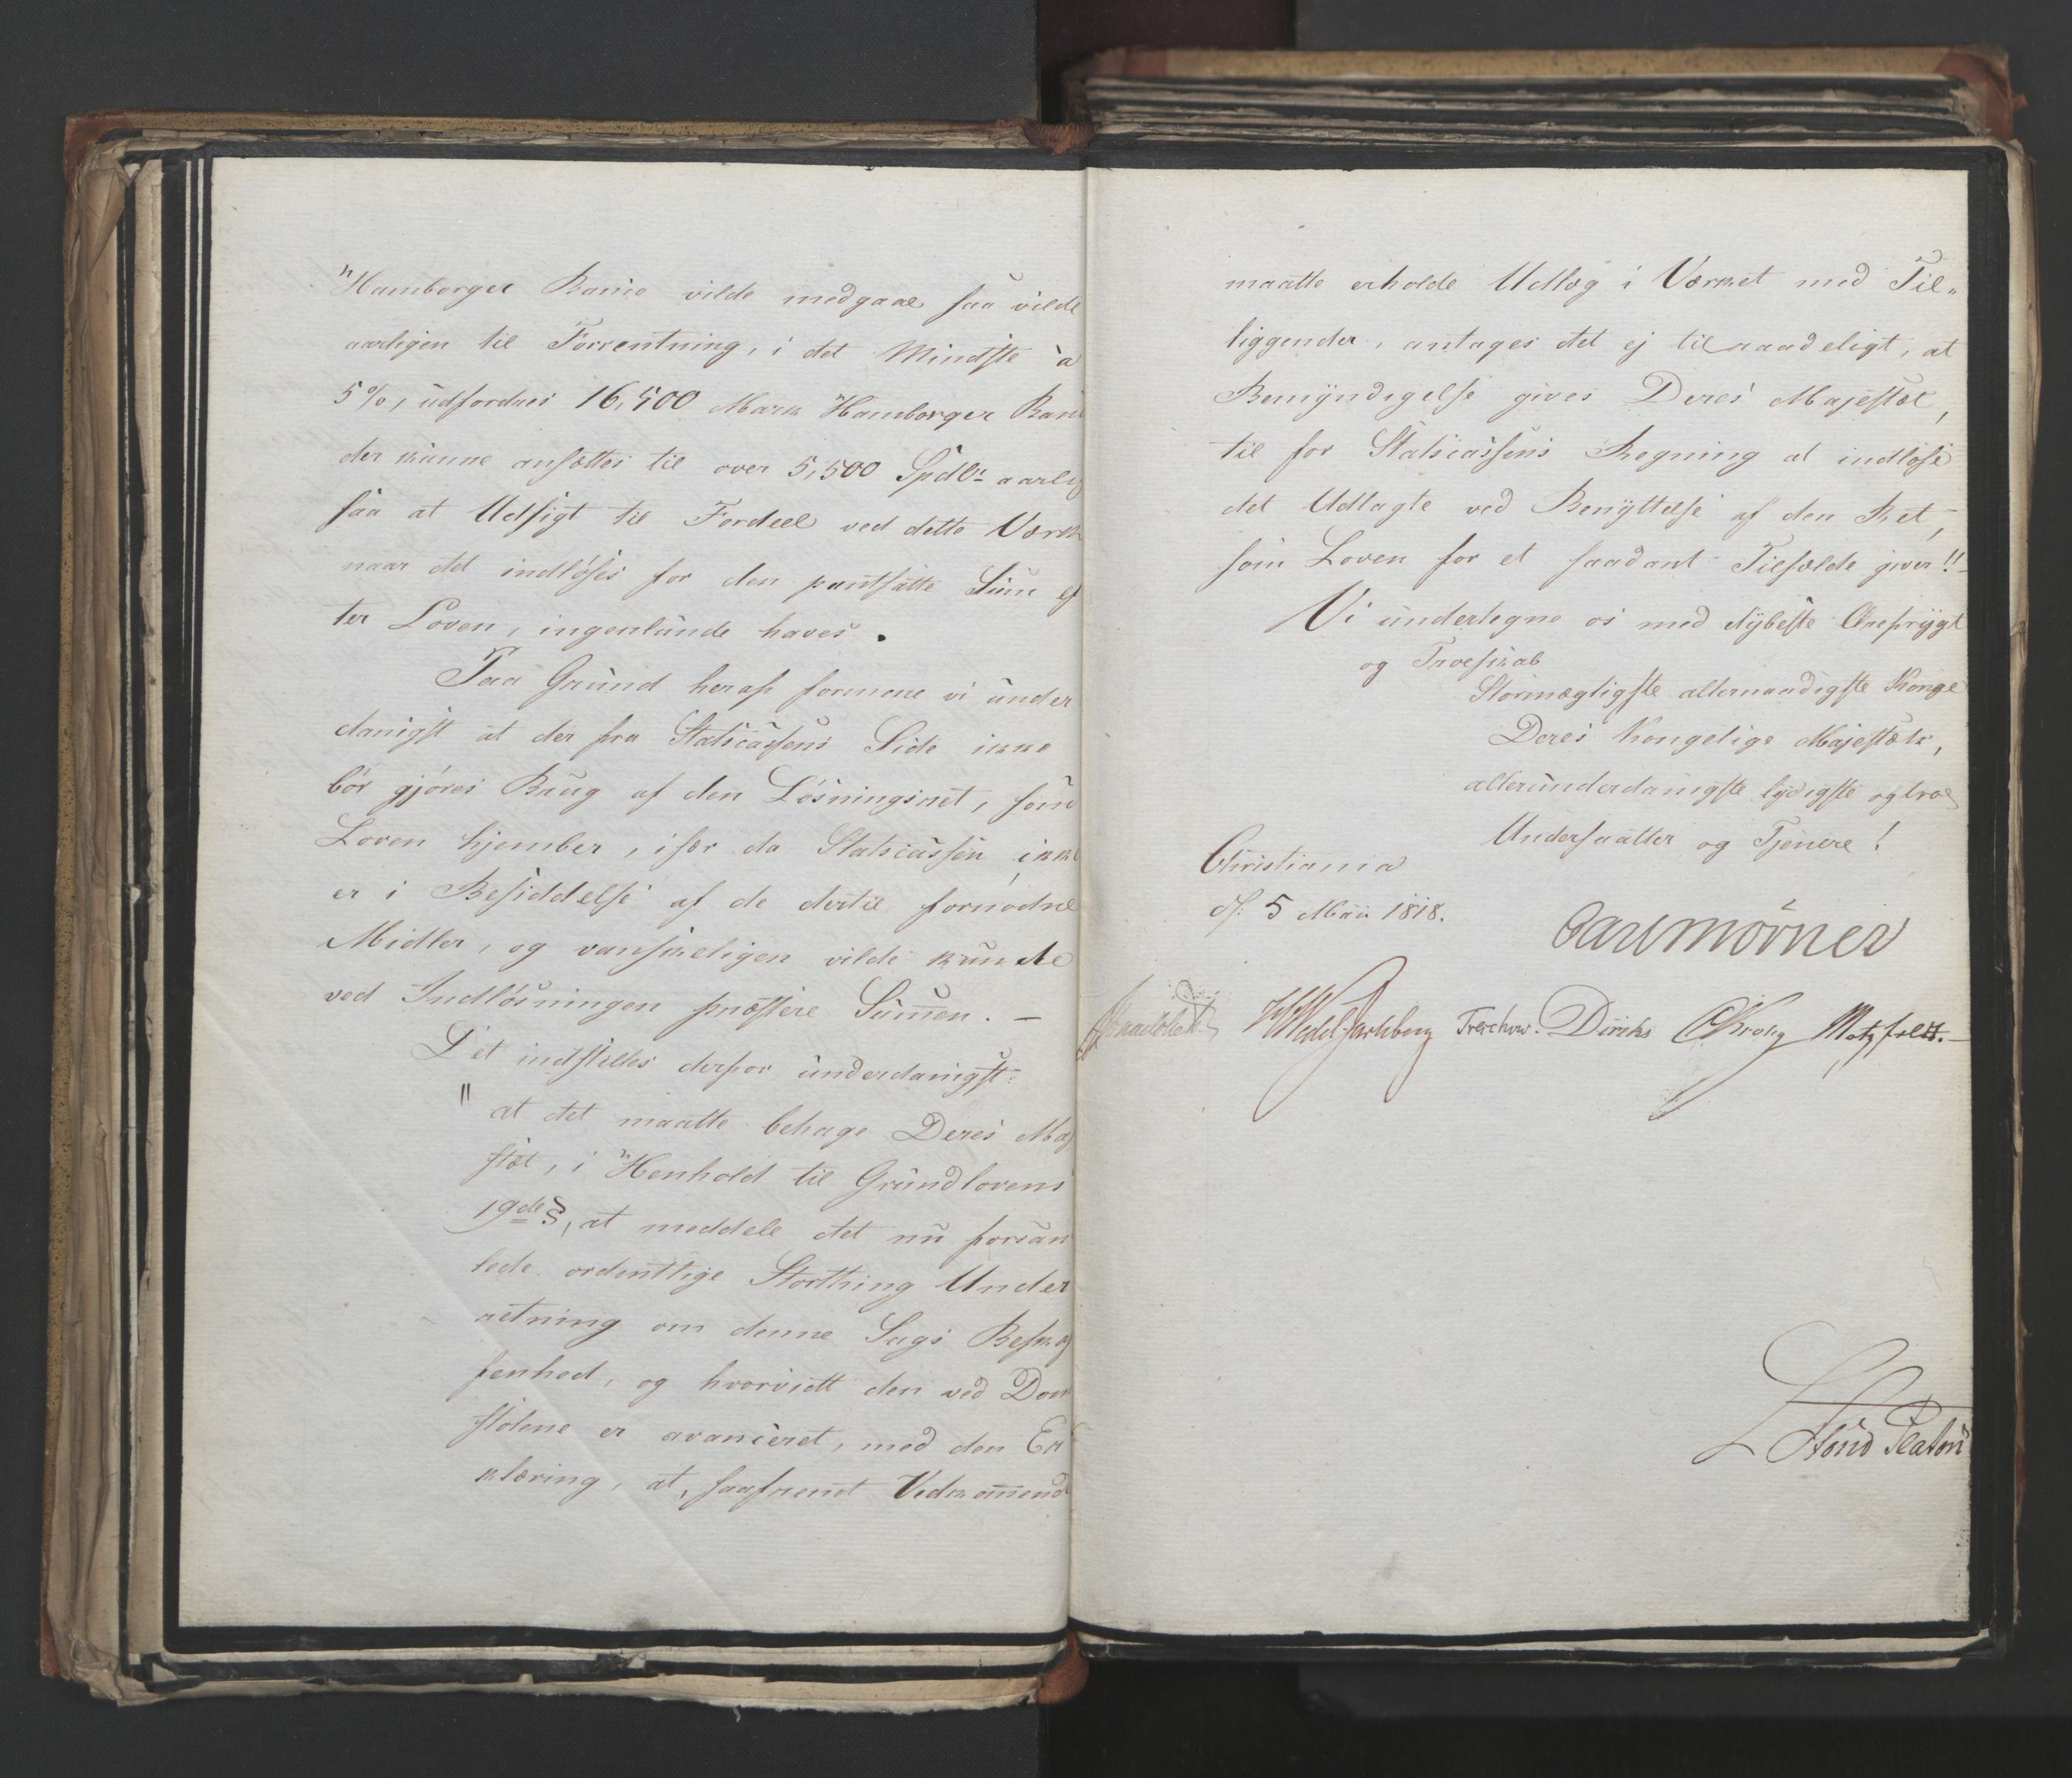 Hamborger Banco vilde medgaae saa vilde
aarligen til Forrentning, i det Mindste à
5 %, udfordres 16,500 Mark Hamborger Ban
der kunne ansættes til over 5,500 Spdlr aarlig
saa at Udsigt til Fordeel ved dette Værk
naar det indløses for den pantsatte Sum ef
ter Loven, ingenlunde haves.
Paa Grund heraf formene vi under
danigst at der fra Statscassens Side ikke
bör gjöres Brug af den Lösningsret, som
Loven hjemler, især da Statscassen ikke
er i Besiddelse af de dertil fornødne
Midler, og vanskeligen vilde kunde
ved Indlösningen præstere Sum̅en. —
Det indstilles derfor underdanigst:
" at det maatte behage Deres Maj
stæt, i Henhold til Grundlovens
19de §, at meddele det nu forsam
lede ordentlige Storthing Under
retning om denne Sags Beskaf
fenhed, og hvorvidt den ved Dom
stolene er avanceret, med den Er
klæring, at, saafremt Vedkom̅end
maatte erholde Udlæg i Værket med Til„
liggender, antages det ej tilraadeligt, at
Bemyndigelse gives Deres Majestæt,
til for Statscassens Regning at indløse
det Udlagte ved Benyttelse af den Ret,
som Loven for et saadant Tilfælde giver!! —
Vi underlegne os med dybeste Ærefrygt
og Troeskab
Stormægtigste allernaadigste Konge
Deres Kongelige Majestæts,
allerunderdanigste lydigste og troe
Undersaatter og Tjenere!
Christiania
d: 5 Mai 1818.
Carl Mörner
WWedel Jarlsberg Treschow. Diriks CKrohg Motzfeldt. —
L Stoud Platou